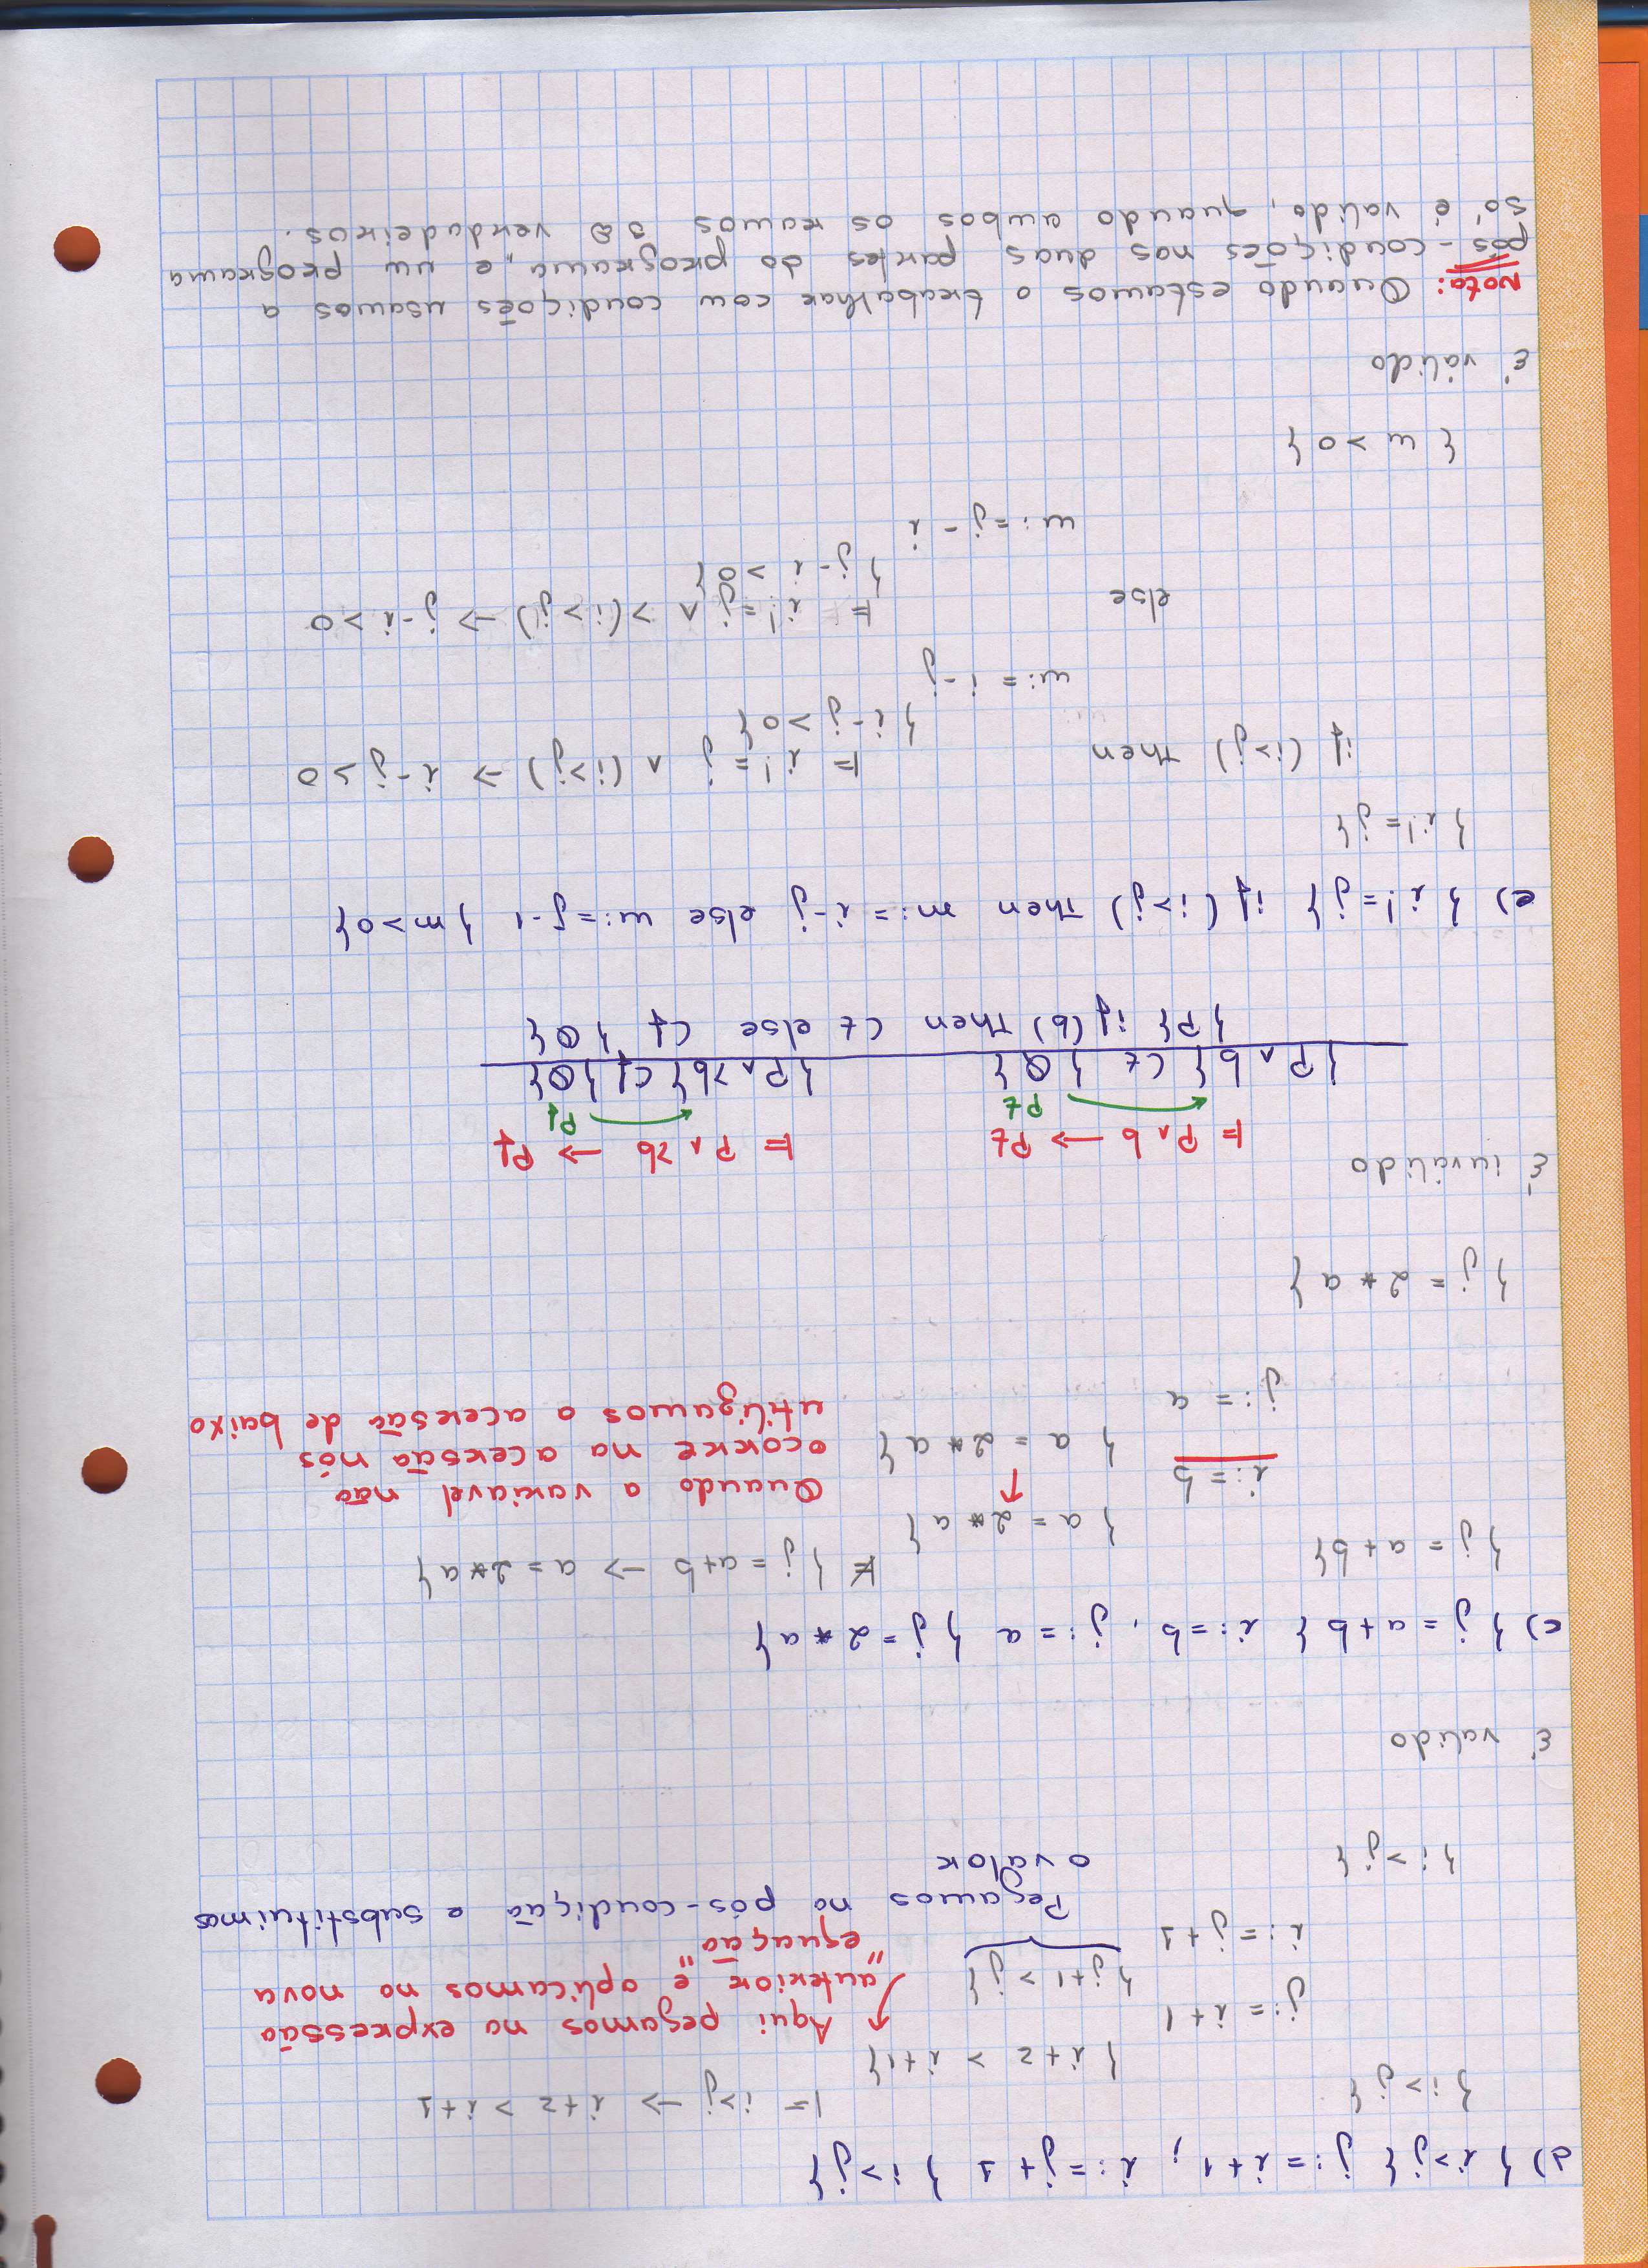 d) {i>j} j:=i+1; i:=j+1 {i>j}
{i>j}
|= i>j -> i+2 > i+1
{i+2 > i+1}
j:=i+1
Aqui pegamos na expressão
anterior e aplicamos na nova
"equação"
{j+1 > j}
i:=j+1
Pegamos na pós-condição e substituimos
o valor
{i>j}
É valido
c) {j=a+b} i:=b, j:=a {j=2*a}
{j=a+b}
⊭ {j=a+b -> a=2*a}
{a=2*a}
i:=b
Quando a variavel não
ocorre na acersão nós
utilizamos a acersão de baixo
{a=2*a}
j:=a
{j=2*a}
É inválido
⊨ P∧b -> Pt
⊨ P∧>b -> Pf
Pt
Pf
{P∧b} Ct {Q}
{P∧>b} Cf {Q}
{P} if(b) Then Ct else Cf {Q}
e) {i!=j} if(i>j) Then m:=i-j else m:=j-1 {m>0}
{i!=j}
if (i>j) Then
⊨ i!=j ∧ (i>j) -> i-j >0
{i-j >0}
m:=i-j
else
⊨ i!=j ∧ >(i>j) -> j-i >0
{j-i >0}
m:=j-i
{m >0}
É válido
Nota: Quando estamos a trabalhar com condições usamos a
pós-condições nas duas partes do programa, e um programa
só é valido, quando ambos os ramos são verdadeiros.